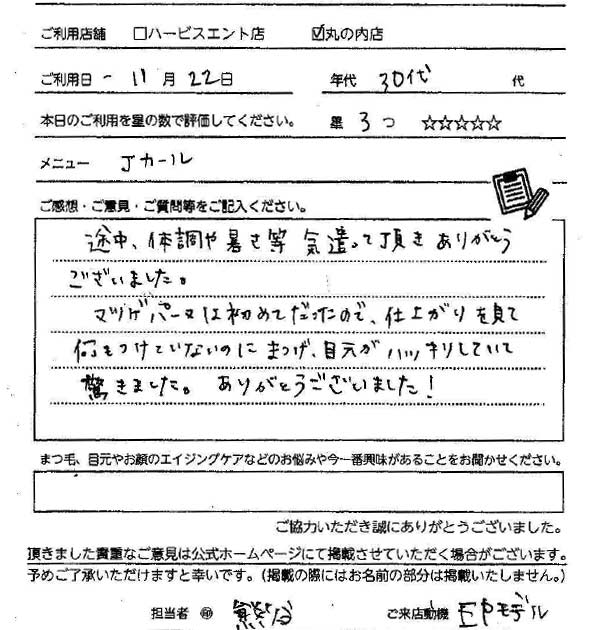 ご利用店舗 □ハービスエント店 ☑丸の内店
ご利用日 - 11月22日 年代 30代 代
本日のご利用を星の数で評価してください。 星 3つ ☆☆☆☆☆
メニュー Jカール
ご感想・ご意見・ご質問等をご記入ください。
途中、体調や暑さ等 気遣って頂き ありがとう
ございました。
マツゲパーマは初めてだったので、仕上がりを見て
何もつけていないのに まつげ、目元が ハッキリしていて
驚きました。 ありがとうございました!
まつ毛、目元やお顔のエイジングケアなどのお悩みや今一番興味があることをお聞かせください。
ご協力いただき誠にありがとうございました。
頂きました貴重なご意見は公式ホームページにて掲載させていただく場合がございます。
予めご了承いただけますと幸いです。(掲載の際にはお名前の部分は掲載いたしません。)
担当者 ㊞ 熊谷 ご来店動機 モデル